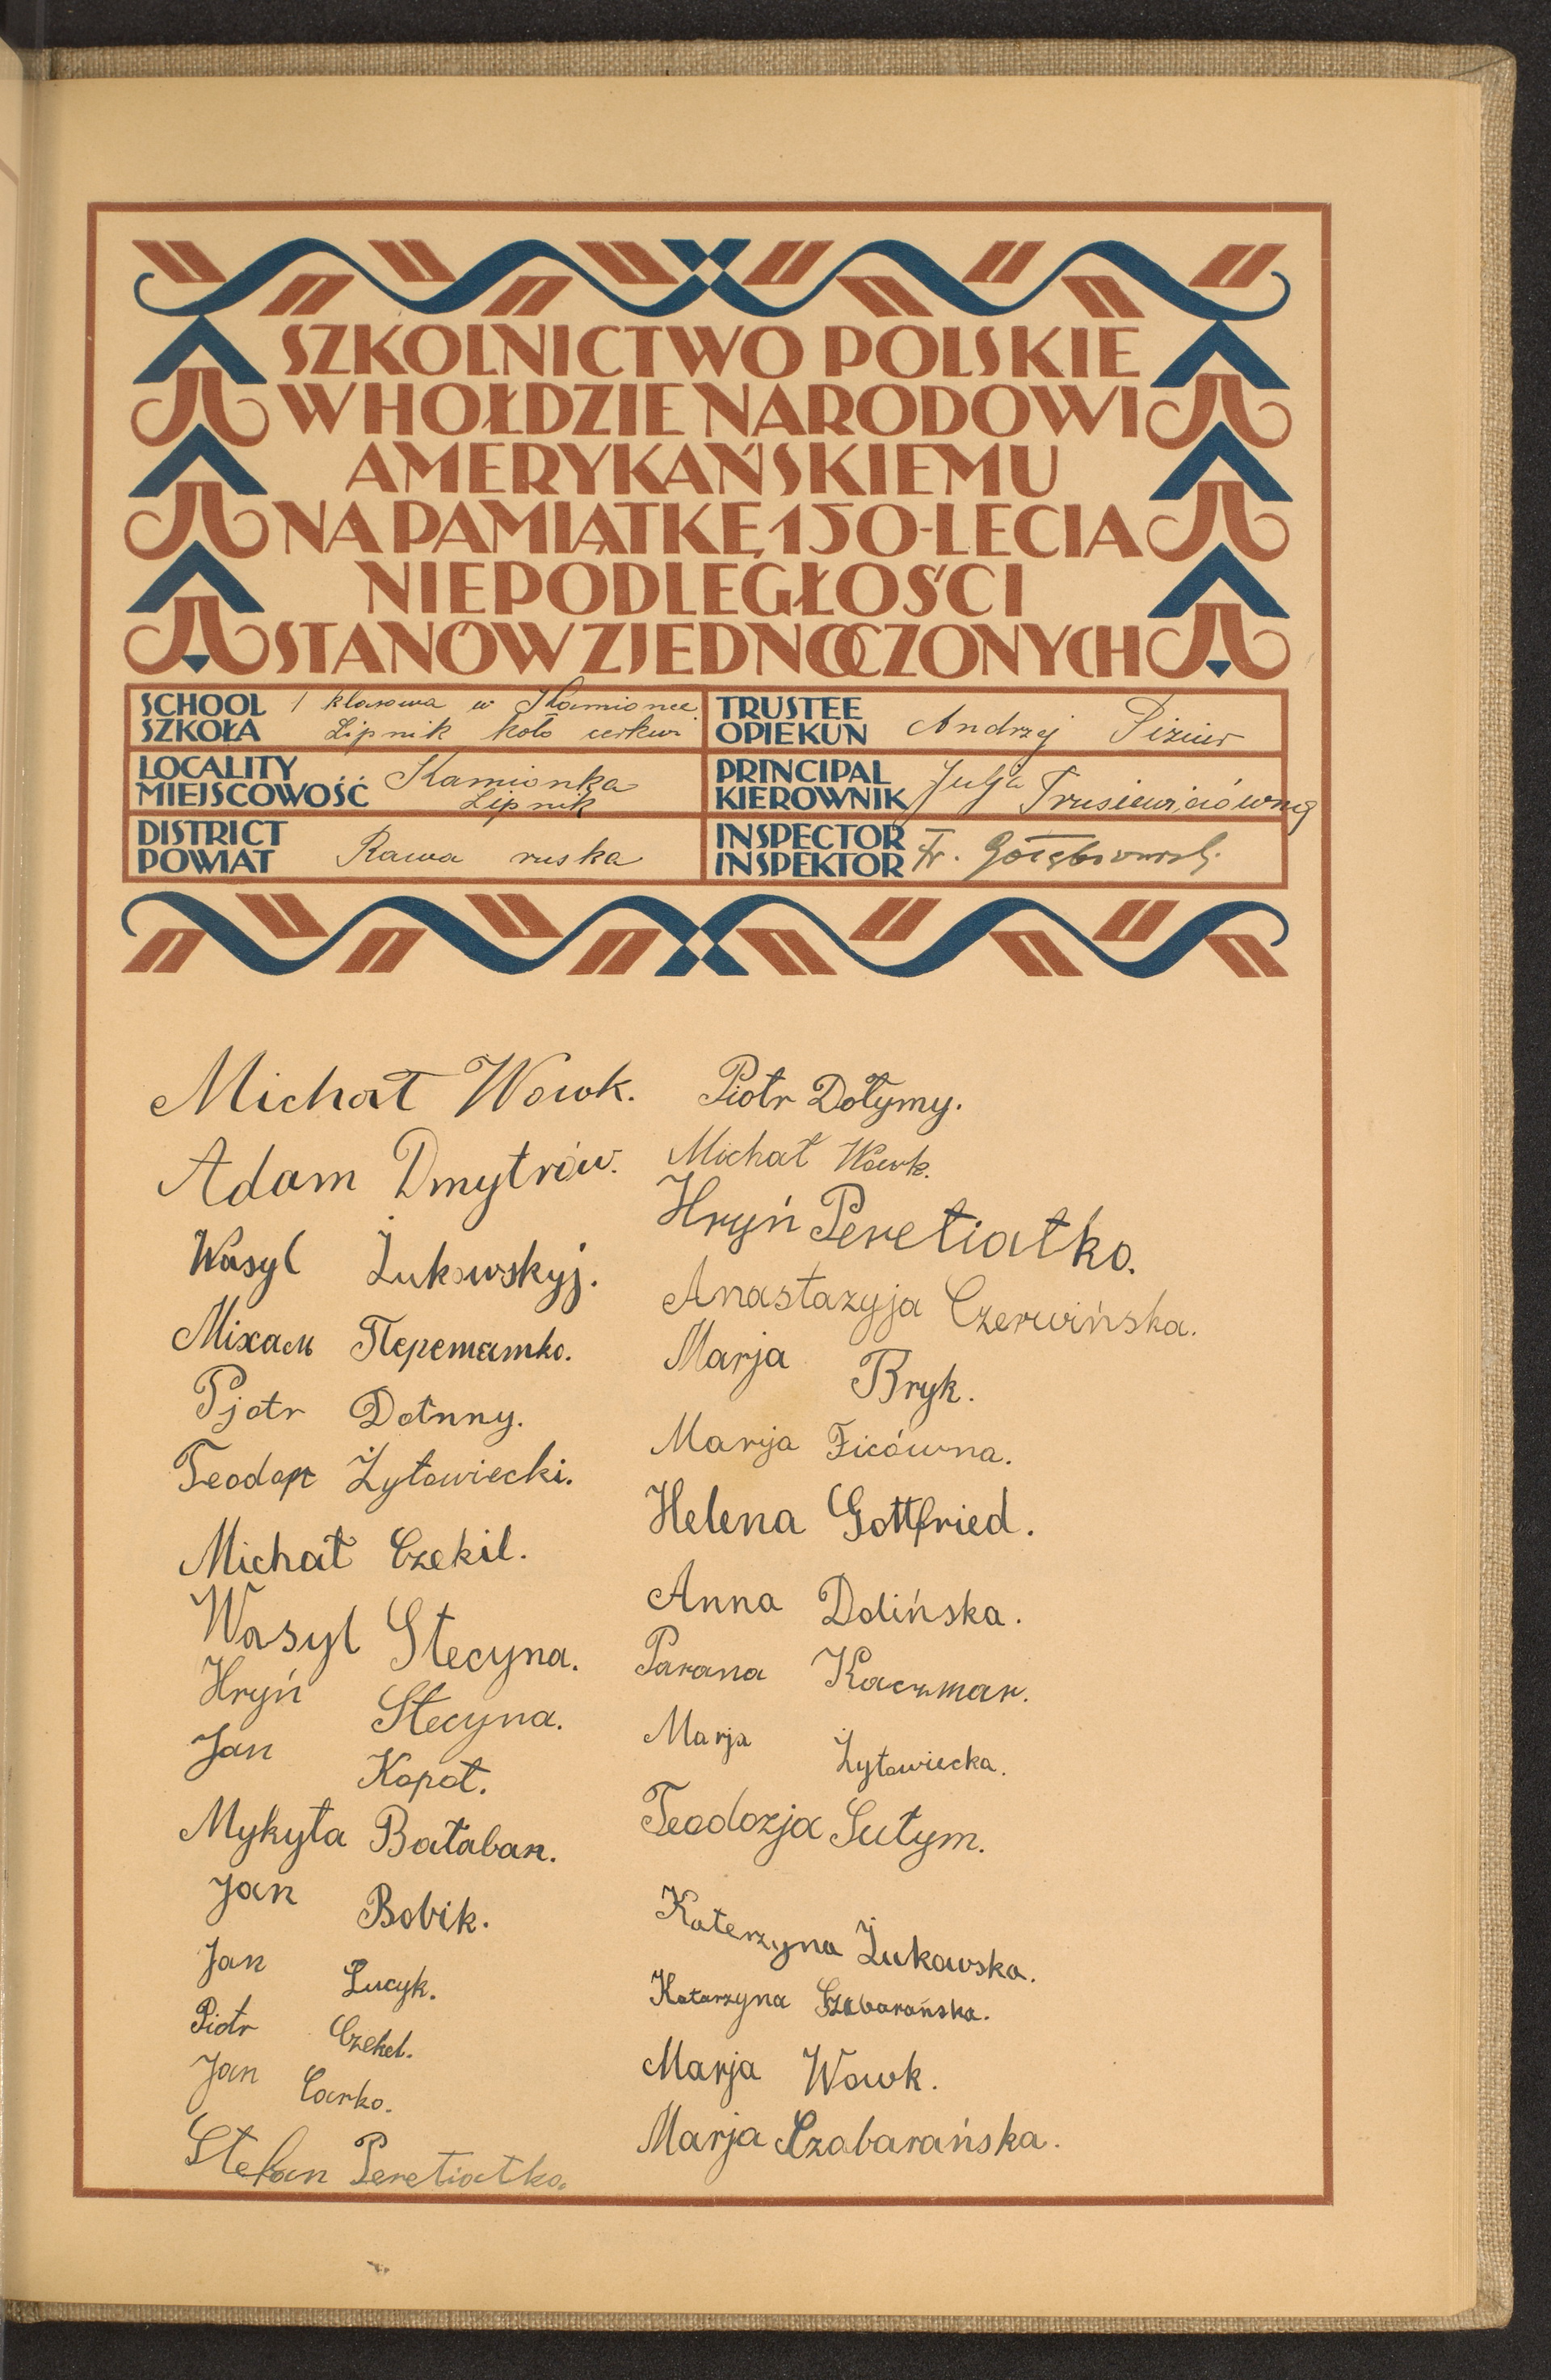 SZKOLNICTWO POLSKIE
W HOŁDZIE NARODOWI
AMERYKAŃSKIEMU
NA PAMIĄTKĘ 150-LECIA
NIEPODLEGŁOŚCI
STANÓW ZJEDNOCZONYCH
SCHOOL
SZKOŁA
1 klasowa w Kamionce
Lipnik koło cerkwi
TRUSTEE
OPIEKUN
Andrzej
LOCALITY
MIEJSCOWOŚĆ
Kamionka
Lipnik
PRINCIPAL
KIEROWNIK
Julja Trusiewiczówna
DISTRICT
POWIAT
Rawa ruska
INSPECTOR
INSPEKTOR
Fr. Gołębiowski
Michał Wowk.
Adam Dmytrów.
Wasyl Żukowskyj.
Михаль Перетятко.
Pjotr Dotnny.
Teodor Żytowiecki.
Michał Czekil.
Wasyl Stecyna.
Hryń Stecyna.
Jan Kopot.
Mykyta Bałaban.
Jan Bobik.
Jan Lucyk.
Piotr Czekel.
Jan Carko.
Stefan Peretiatko.
Piotr Dotymy.
Michał Wowk.
Hryń Peretiatko.
Anastazyja Czerwińska.
Marja Bryk.
Marija Ficówna.
Helena Gottfried.
Anna Dolińska.
Parana Kaczmar.
Marja Żytowiecka.
Teodozja Sutym.
Katerzyna Żukowska.
Katarzyna Szabarańska.
Marja Wowk.
Marja Szabarańska.